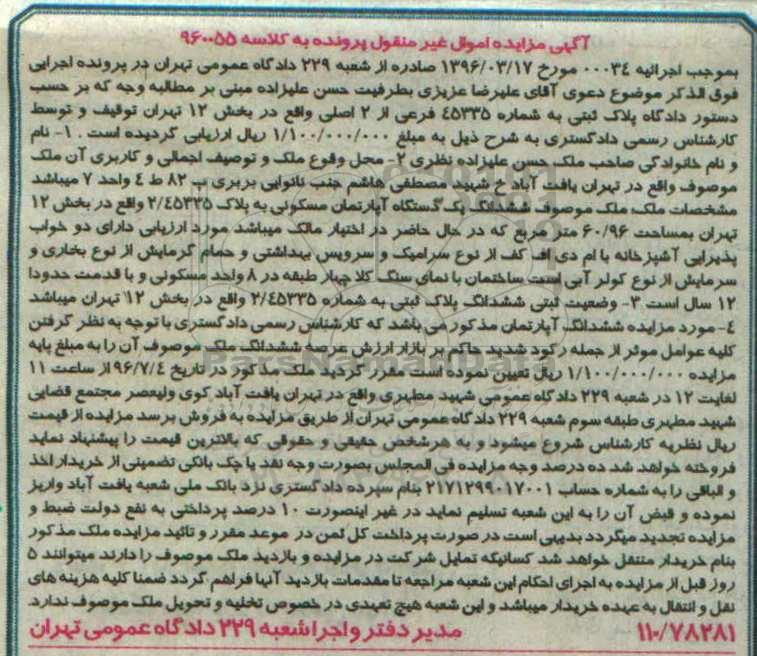 آگهی مزایده اموال غیر منقول پرونده به کلاسه ۹۶۰۰۵۵
بموجب اجرائیه ۰۰۰۳۴ مورخ ۱۳۹۶/۰۳/۱۷ صادره از شعبه ۲۲۹ دادگاه عمومی تهران در پرونده اجرایی
فوق الذکر موضوع دعوی آقای علیرضا عزیزی بطرفیت حسن علیزاده مبنی بر مطالبه وجه که بر حسب
دستور دادگاه پلاک ثبتی به شماره ۴۵۳۳۵ فرعی از ۲ اصلی واقع در بخش ۱۲ تهران توقیف و توسط
کارشناس رسمی دادگستری به شرح ذیل به مبلغ ۱/۱۰۰/۰۰۰/۰۰۰ ریال ارزیابی گردیده است . ۱- نام
و نام خانوادگی صاحب ملک حسن علیزاده نظری ۲- محل وقوع ملک و توصیف اجمالی و کاربری آن ملک
موصوف واقع در تهران یافت آباد خ شهید مصطفی هاشم جنب نانوایی بربری پ ۸۲ ط ۴ واحد ۷ میباشد
مشخصات ملک، ملک موصوف ششدانگ یک دستگاه آپارتمان مسکونی به پلاک ۲/۴۵۳۳۵ واقع در بخش ۱۲
تهران بمساحت ۶۰/۹۶ متر مربع که در حال حاضر در اختیار مالک میباشد مورد ارزیابی دارای دو خواب
پذیرایی آشپزخانه با ام دی اف کف از نوع سرامیک و سرویس بهداشتی و حمام گرمایش از نوع بخاری و
سرمایش از نوع کولر آبی است ساختمان با نمای سنگ کلا چهار طبقه در ۸ واحد مسکونی و با قدمت حدودا
۱۲ سال است ۳- وضعیت ثبتی ششدانگ پلاک ثبتی به شماره ۲/۴۵۳۳۵ واقع در بخش ۱۲ تهران میباشد
۴- مورد مزایده ششدانگ آپارتمان مذکور می باشد که کارشناس رسمی دادگستری با توجه به نظر گرفتن
کلیه عوامل موثر از جمله رکود شدید حاکم بر بازار ارزش عرصه ششدانگ ملک موصوف آن را به مبلغ پایه
مزایده ۱/۱۰۰/۰۰۰/۰۰۰ ریال تعیین نموده است مقرر گردید ملک مذکور در تاریخ ۹۶/۷/۴ از ساعت ۱۱
لغایت ۱۲ در شعبه ۲۲۹ دادگاه عمومی شهید مطهری واقع در تهران یافت آباد کوی ولیعصر مجتمع قضایی
شهید مطهری طبقه سوم شعبه ۲۲۹ دادگاه عمومی تهران از طریق مزایده به فروش برسد مزایده از قیمت
ریال نظریه کارشناس شروع میشود و به هرشخص حقیقی و حقوقی که بالاترین قیمت را پیشنهاد نماید
فروخته خواهد شد ده درصد وجه مزایده فی المجلس بصورت وجه نقد یا چک بانکی تضمینی از خریدار اخذ
و الباقی را به شماره حساب ۲۱۷۱۲۹۹۰۱۷۰۰۱ بنام سپرده دادگستری نزد بانک ملی شعبه یافت آباد واریز
نموده و قبض آن را به این شعبه تسلیم نماید در غیر اینصورت ۱۰ درصد پرداختی به نفع دولت ضبط و
مزایده تجدید میگردد بدیهی است در صورت پرداخت کل ثمن در موعد مقرر و تائید مزایده ملک مذکور
بنام خریدار منتقل خواهد شد کسانیکه تمایل شرکت در مزایده و بازدید ملک موصوف را دارند میتوانند ۵
روز قبل از مزایده به اجرای احکام این شعبه مراجعه تا مقدمات بازدید آنها فراهم گردد ضمنا کلیه هزینه های
نقل و انتقال به عهده خریدار میباشد و این شعبه هیچ تعهدی در خصوص تخلیه و تحویل ملک موصوف ندارد.
۱۱۰/۷۸۲۸۱ مدیر دفتر و اجرا شعبه ۲۲۹ دادگاه عمومی تهران
ParsNamadData